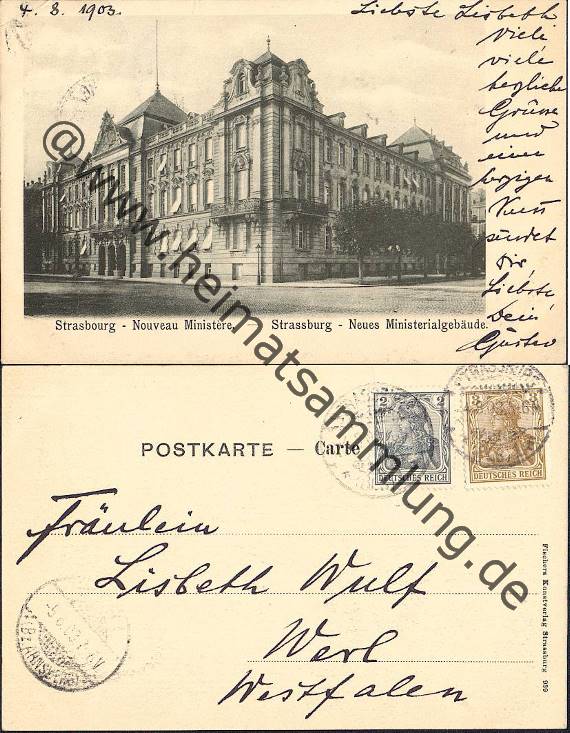 4. 8. 1903
Liebste Lisbeth
Viele
viele
herzliche
Grüsse
und
einen
herzigen
Kuss
sendet
Dir,
Liebste
Dein
Gustav
Strasbourg - Nouveau Ministère. Strassburg - Neues Ministerialgebäude.
www.heimatsammlung.de
POSTKARTE — Carte
2
DEUTSCHES REICH
3
DEUTSCHES REICH
Fräulein
Lisbeth Wulf
Werl
Westfalen
Fischers Kunstverlag Strassburg 939